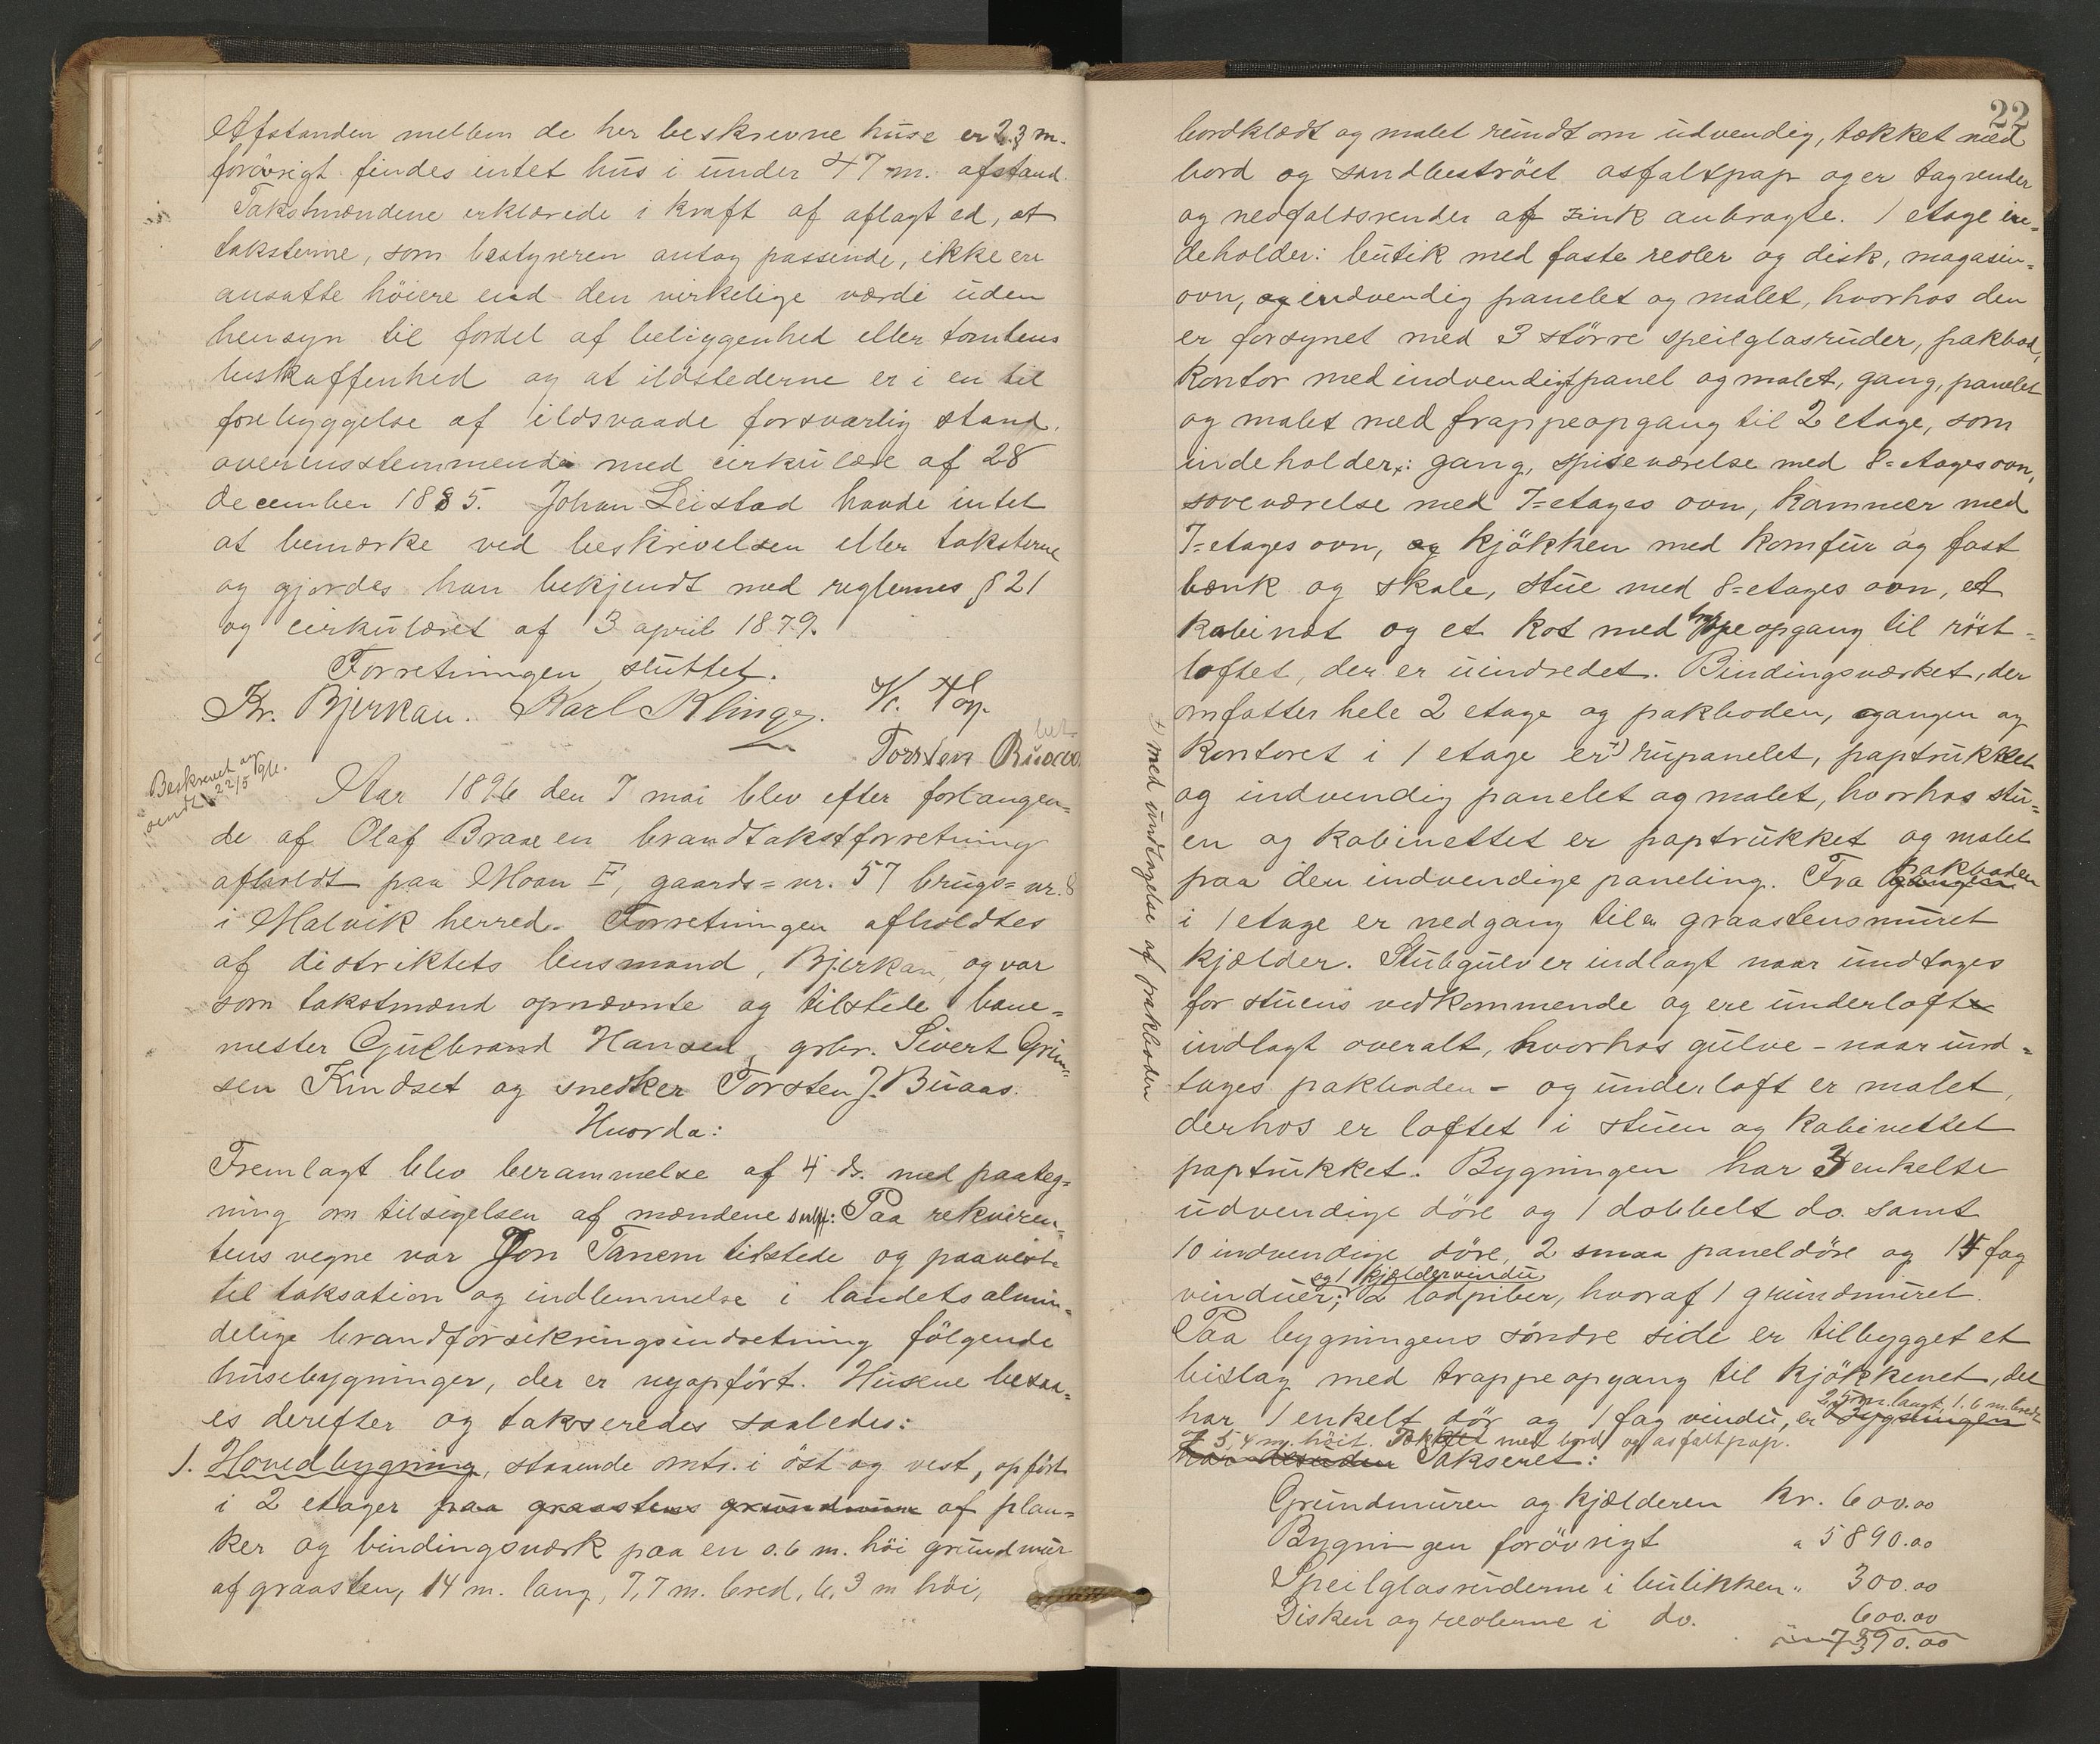 Afstanden mellem de her beskrevne huse er 2.3 m.
forövrigt findes intet hus i under 47 m. afstand.
Takstmændene erklærede i kraft af aflagt ed, at
taksterne, som bestyreren antog passende, ikke ere
ansatte höiere end den virkelige værdi uden
hensyn til fordel af beliggenhed eller tomtens
beskaffenhed og at ildstederne er i en til
forebyggelse af ildsvaade forsvarlig stand.
overensstemmende med cirkulære af 28
december 1885. Johan Leistad havde intet
at bemærke ved beskrivelsen eller taksterne
og gjordes han bekjendt med reglernes § 21
og cirkulæret af 3 april 1879.
Forretningen sluttet.
Kr. Bjerkan. Karl Klinge.
Torsten Buaas
Beskrevet og
sendt 22/5 96.
Aar 1896 den 7 mai blev efter forlangen=
de af Olaf Braae en brandtakstforretning
afholdt paa Moan F, gaards=nr. 57 brugs=nr. 8
i Malvik herred. Forretningen afholdtes
af distriktets lensmand, Bjerkan, og var
som takstmænd opnævnte og tilstede bane=
mester Gulbrand Hansen, grbr. Sivert Grim=
sen Kindset og snedker Torsten J. Buaas.
Hvorda:
Fremlagt blev berammelse af 4 ds. med paateg=
ning om tilsigelsen af mændene Paa rekviren=
tens vegne var Jon Tanem tilstede og paaviste
til taksation og indlemmelse i landets almin=
delige brandforsikringsindretning fölgende
husebygninger, der er nyopfört. Husene besaa=
es derefter og takseredes saaledes:
1. Hovedbygning, staaende omtr. i öst og vest, opfört
i 2 etager paa graastens grundmur af plan=
ker og bindingsværk paa en 0.6 m. höi grundmur
af graasten, 14 m. lang, 7,7 m. bred, 6,3 m höi,
22
bordklædt og malet rundt om udvendig, tækket med
bord og sandbeströet asfaltpap og er tagrender
og nedfaldsrender af zink anbragte. 1 etage in=
deholder: butik med faste reoler og disk, magasin=
ovn, og indvendig panelet og malet, hvorhos den
er forsynet med 3 större speilglasruder, pakbod,
kontor med indvendigt panel og malet, gang, panelet
og malet med trappeopgang til 2 etage, som
indeholder: gang, spiseværelse med 8=etages ovn,
soveværelse med 7=etages ovn, kammer med
7=etages ovn, og kjökken med komfur og fast
bænk og skale, stue med 8=etages ovn, et
kabinet og et kot med trappeopgang til röst=
loftet, der er uindredet. Bindingsværket, der
omfatter hele 2 etage og pakboden, gangen og
kontoret i 1 etage er +) rupanelet, paptrukket
og indvendig panelet og malet, hvorhos stu=
en og kabinettet er paptrukket og malet
paa den indvendige paneling. Fra gangen pakboden
i 1 etage er nedgang til en graastensmuret
kjælder. Stubgulv er indlagt naar undtages
for stuens vedkommende og ere underloft
indlagt overalt, hvorhos gulve - naar und=
tages pakboden - og underloft er malet,
derhos er loftet i stuen og kabinettet
paptrukket. Bygningen har 3 enkelte
udvendige döre og 1 dobbelt do. samt
10 indvendige döre, 2 smaa paneldöre og 14 fag
vinduer; og 1 kjældervindu, 2 lodpiber, hvoraf 1 grundmuret.
Paa bygningens söndre side er tilbygget et
bislag med trappeopgang til kjökkenet, det
har 1 enkelt dör og 1 fag vindu, er 2,5 m. langt, 1.6 m. bredt
5,4 m. höit. Tækket med bord og asfaltpap.
Takseret:
Grundmuren og kjælderen kr. 600.00
Bygningen forövrigt " 5890.00
Speilglasruderne i butikken " 300.00
Disken og reolerne i do. 600.00
7390.00
+) med undtagelse af pakboden